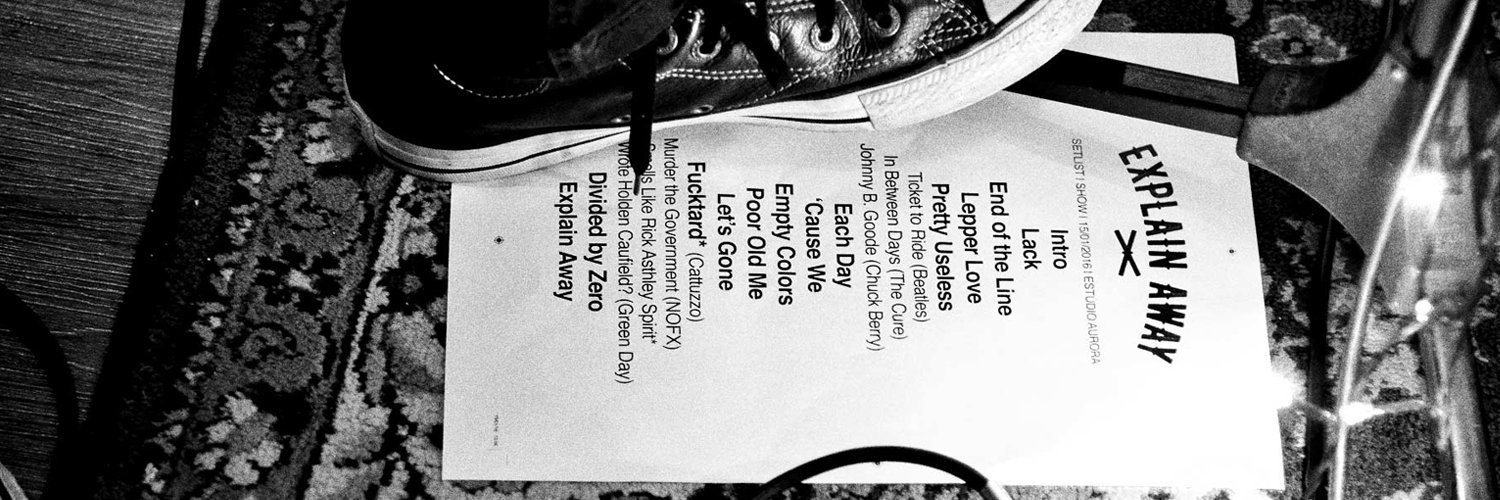 EXPLAIN AWAY
SETLIST | SHOW | 15/01/2016 | ESTUDIO AURORA
Intro
Lack
End of the Line
Lepper Love
Pretty Useless
Ticket to Ride (Beatles)
In Between Days (The Cure)
Johnny B. Goode (Chuck Berry)
Each Day
‘Cause We
Empty Colors
Poor Old Me
Let's Gone
Fucktard* (Cattuzzo)
Murder the Government (NOFX)
Like Rick Asthley Spirit*
Wrote Holden Caufield? (Green Day)
Divided by Zero
Explain Away